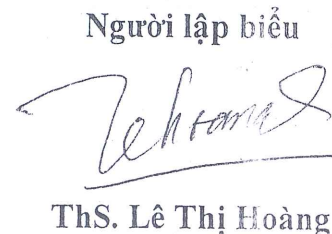 Người lập biểu
ThS. Lê Thị Hoàng